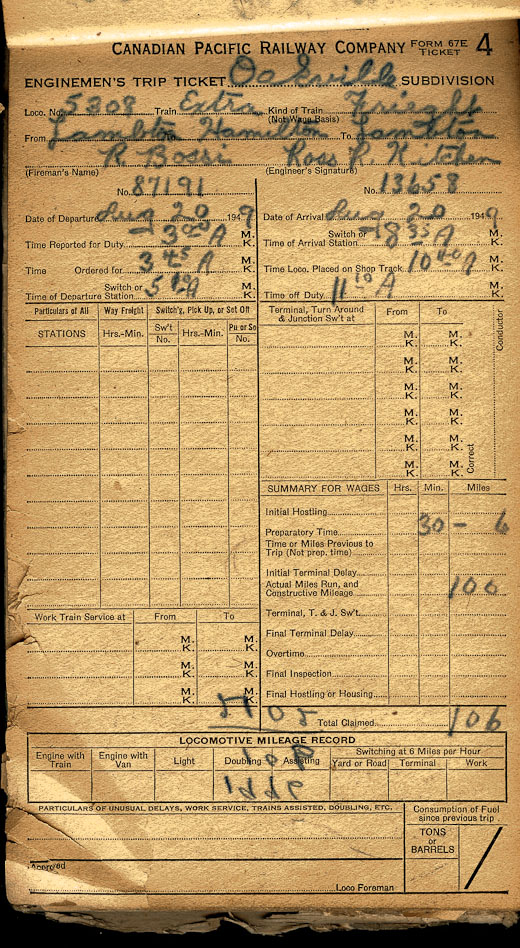 CANADIAN PACIFIC RAILWAY COMPANY FORM 67E TICKET 4
ENGINEMEN'S TRIP TICKET Oakville SUBDIVISION
Loco. No. 5308 Train Extra Kind of Train Frieght
(Not Wage Basis)
From Lambton Hamilton To Lambton
R. Boser Ross R. Kitchen
(Fireman's Name) (Engineer's Signature)
No. 87191 No. 13658
Date of Departure Aug 20 1949 Date of Arrival Aug 20 1949
Time Reported for Duty 3 00 A M. K. Switch or Time of Arrival Station 8 35 A M. K.
Time Ordered for 3 45 A M. K. Time Loco. Placed on Shop Track 10 40 A M. K.
Switch or Time of Departure Station A M. K. Time off Duty 11 10 A M. K.
Particulars of All Way Freight Switch'g, Pick Up, or Set Off
STATIONS Hrs.-Min. Sw't No. Hrs.-Min. Pu or So No.
Terminal, Turn Around & Junction Sw't at From To
M. K. M. K.
M. K. M. K.
M. K. M. K.
M. K. M. K.
M. K. M. K.
M. K. M. K.
Correct Conductor
SUMMARY FOR WAGES Hrs. Min. Miles
Initial Hostling
Preparatory Time 30 - 6
Time or Miles Previous to
Trip (Not prep. time)
Initial Terminal Delay
Actual Miles Run, and
Constructive Mileage 100
Terminal, T. & J. Sw't.
Final Terminal Delay
Overtime
Final Inspection
Final Hostling or Housing
Total Claimed 106
Work Train Service at From To
M. K. M. K.
M. K. M. K.
M. K. M. K.
LOCOMOTIVE MILEAGE RECORD
Engine with Train Engine with Van Light Doubling Assisting Switching at 6 Miles per Hour
Yard or Road Terminal Work
PARTICULARS OF UNUSUAL DELAYS, WORK SERVICE, TRAINS ASSISTED, DOUBLING, ETC.
Consumption of Fuel
since previous trip
TONS
or
BARRELS
Approved
Loco Foreman